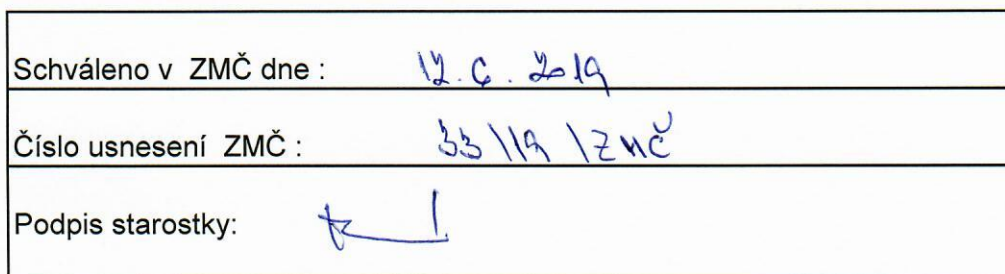 Schváleno v ZMČ dne : 12. 6. 2019
Číslo usnesení ZMČ : 33 \19 \ZMČ
Podpis starostky: